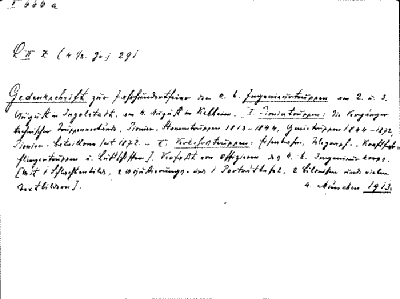 666 a
Q II 7 (4/2. J. 29)
Gedenkschrift zur Jahrhundertfeier der K. b. Ingenieurtruppen am 2. u. 3.
August in Ingolstadt, am 4. August in Kelheim. I. Pioniertruppen: Die Vorgänger
technischer Truppenverbände, Pionier-, 1813-1844, Genietruppen 1844-1872,
Pionier-Bataillone seit 1872. - II. Verkehrstruppen: Eisenbahn-, Telegraph-, Kraftfahr-,
Fliegertruppen u. Luftschiffer]. Verfaßt von Offizieren des K. b. Ingenieur-Korps.
[Mit 1 Schlachtenbild, 2 und 1 Porträttafel, 2 und vielen
Textbildern].
4. München 1913.